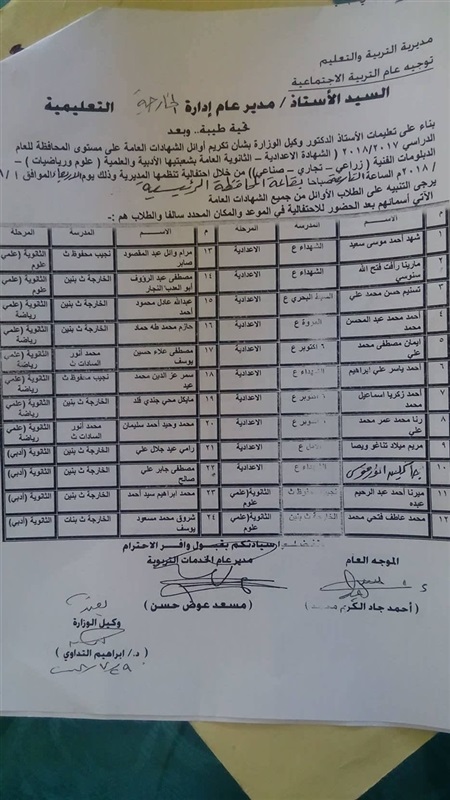 مديرية التربية والتعليم
توجيه عام التربية الاجتماعية
السيد الأستاذ / مدير عام إدارة الخارجة التعليمية
تحية طيبة.. وبعد
بناء على تعليمات الأستاذ الدكتور وكيل الوزارة بشأن تكريم أوائل الشهادات العامة على مستوى المحافظة للعام
الدراسي ٢٠١٨/٢٠١٧ ( الشهادة الاعدادية – الثانوية العامة بشعبتيها الأدبية والعلمية ( علوم ورياضيات ) –
الدبلومات الفنية ( زراعي – تجاري – صناعي)) من خلال احتفالية تنظمها المديرية وذلك يوم الموافق ١ /
٢٠١٨/م الساعة صباحا بقاعة المحافظة الرئيسية
يرجى التنبيه على الطلاب الأوائل من جميع الشهادات العامة
الآتي أسمائهم بعد الحضور للاحتفالية في الموعد والمكان المحدد سالفا والطلاب هم :-
م الاســـم المدرسة المرحلة م الاســـم المدرسة المرحلة
١ شهد أحمد موسى سعيد الشهداء ع الاعدادية ١٣ مرام وائل عبد المقصود صابر نجيب محفوظ ث الثانوية (علمي) علوم
٢ مارينا رأفت فتح الله سنوسي الشهداء ع الاعدادية ١٤ مصطفى عبد الرؤوف أبو العلا النجار الخارجة ث بنين الثانوية (علمي) علوم
٣ تسنيم حسن محمد علي البحري ع الاعدادية ١٥ عبدالله عادل محمود أحمد الخارجة ث بنين الثانوية (علمي) رياضة
٤ أحمد محمد عبد المحسن محمد ع الاعدادية ١٦ حازم محمد طه حماد الخارجة ث بنين الثانوية (علمي) رياضة
٥ ايمان مصطفى محمد علي ٦ أكتوبر ع الاعدادية ١٧ مصطفى علاء حسين يوسف محمد أنور السادات ث الثانوية (علمي) رياضة
٦ أحمد ياسر علي ابراهيم الشهداء ع الاعدادية ١٨ سمر عز الدين محمد عيد نجيب محفوظ ث الثانوية (علمي) رياضة
٧ أحمد زكريا اسماعيل أكتوبر ع الاعدادية ١٩ مايكل محي جندي قلد الخارجة ث بنين الثانوية (علمي) رياضة
٨ رنا محمد عمر محمد علي أكتوبر ع الاعدادية ٢٠ محمد وحيد أحمد سليمان محمد أنور السادات ث الثانوية (أدبي)
٩ مريم ميلاد تناغو ويصا ع الاعدادية ٢١ رامي عيد جلال علي الخارجة ث بنين الثانوية (أدبي)
١٠ ع الاعدادية ٢٢ مصطفى جابر علي صالح الخارجة ث بنين الثانوية (أدبي)
١١ ميرنا أحمد عبد الرحيم عبده نجيب محفوظ ث الثانوية(علمي) علوم ٢٣ محمد ابراهيم سيد أحمد الخارجة ث بنين الثانوية (أدبي)
١٢ محمد عاطف فتحي محمد الخارجة ث بنين الثانوية(علمي) علوم ٢٤ شروق محمد مسعود يوسف الخارجة ث بنات الثانوية (أدبي)
سيادتكم بقبول وافر الاحترام
الموجه العام
مدير عام الخدمات التربوية
( أحمد جاد الكريم )
( مسعد عوض حسن )
يعتمد
وكيل الوزارة
( د/ ابراهيم التداوي )